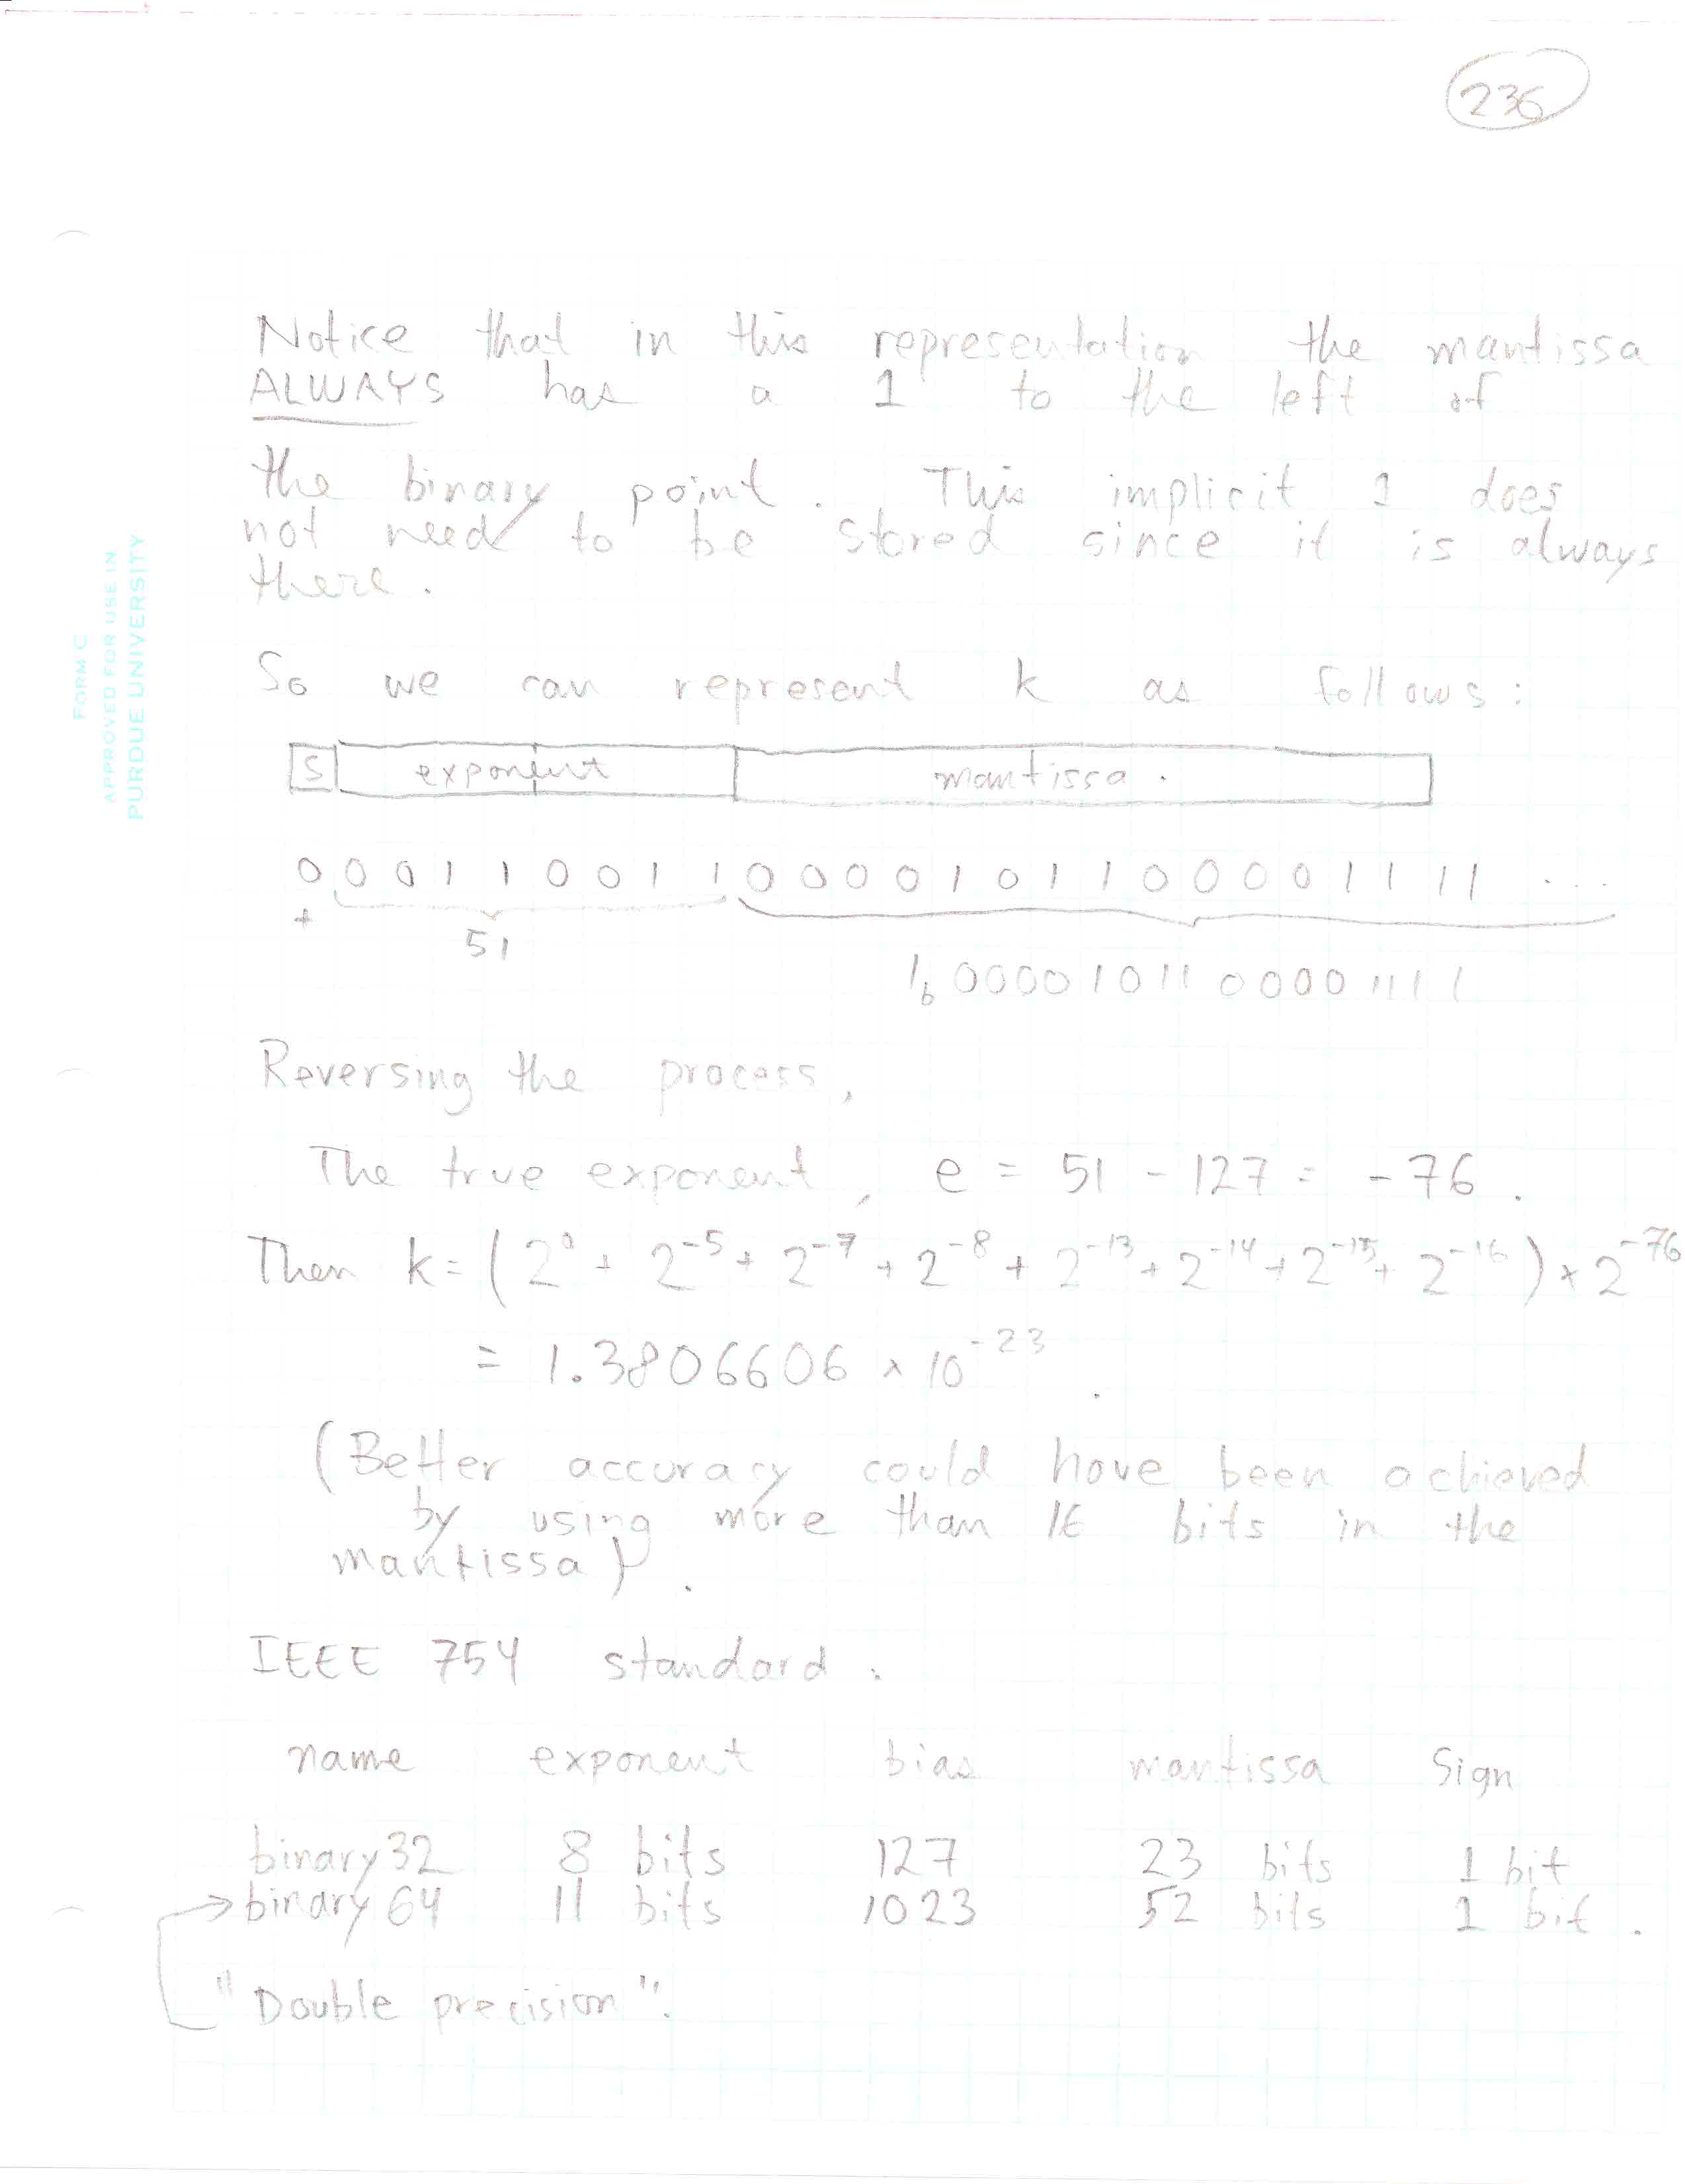 236
Notice that in this representation the mantissa
ALWAYS has a 1 to the left of
the binary point. This implicit 1 does
not need to be stored since it is always
there.
FORM C
APPROVED FOR USE IN
PURDUE UNIVERSITY
So we can represent k as follows:
S exponent mantissa.
0 0 0 1 1 0 0 1 1 0 0 0 0 1 0 1 1 0 0 0 0 1 1 1 1 ...
+
51
1b 0000101100001111
Reversing the process,
The true exponent, e = 51 - 127 = -76.
Then k = (2^0 + 2^-5 + 2^-7 + 2^-8 + 2^-13 + 2^-14 + 2^-15 + 2^-16) × 2^-76
= 1.3806606 × 10^-23.
(Better accuracy could have been achieved
by using more than 16 bits in the
mantissa).
IEEE 754 standard.
name exponent bias mantissa Sign
binary32 8 bits 127 23 bits 1 bit
→ binary64 11 bits 1023 52 bits 1 bit.
"Double precision".